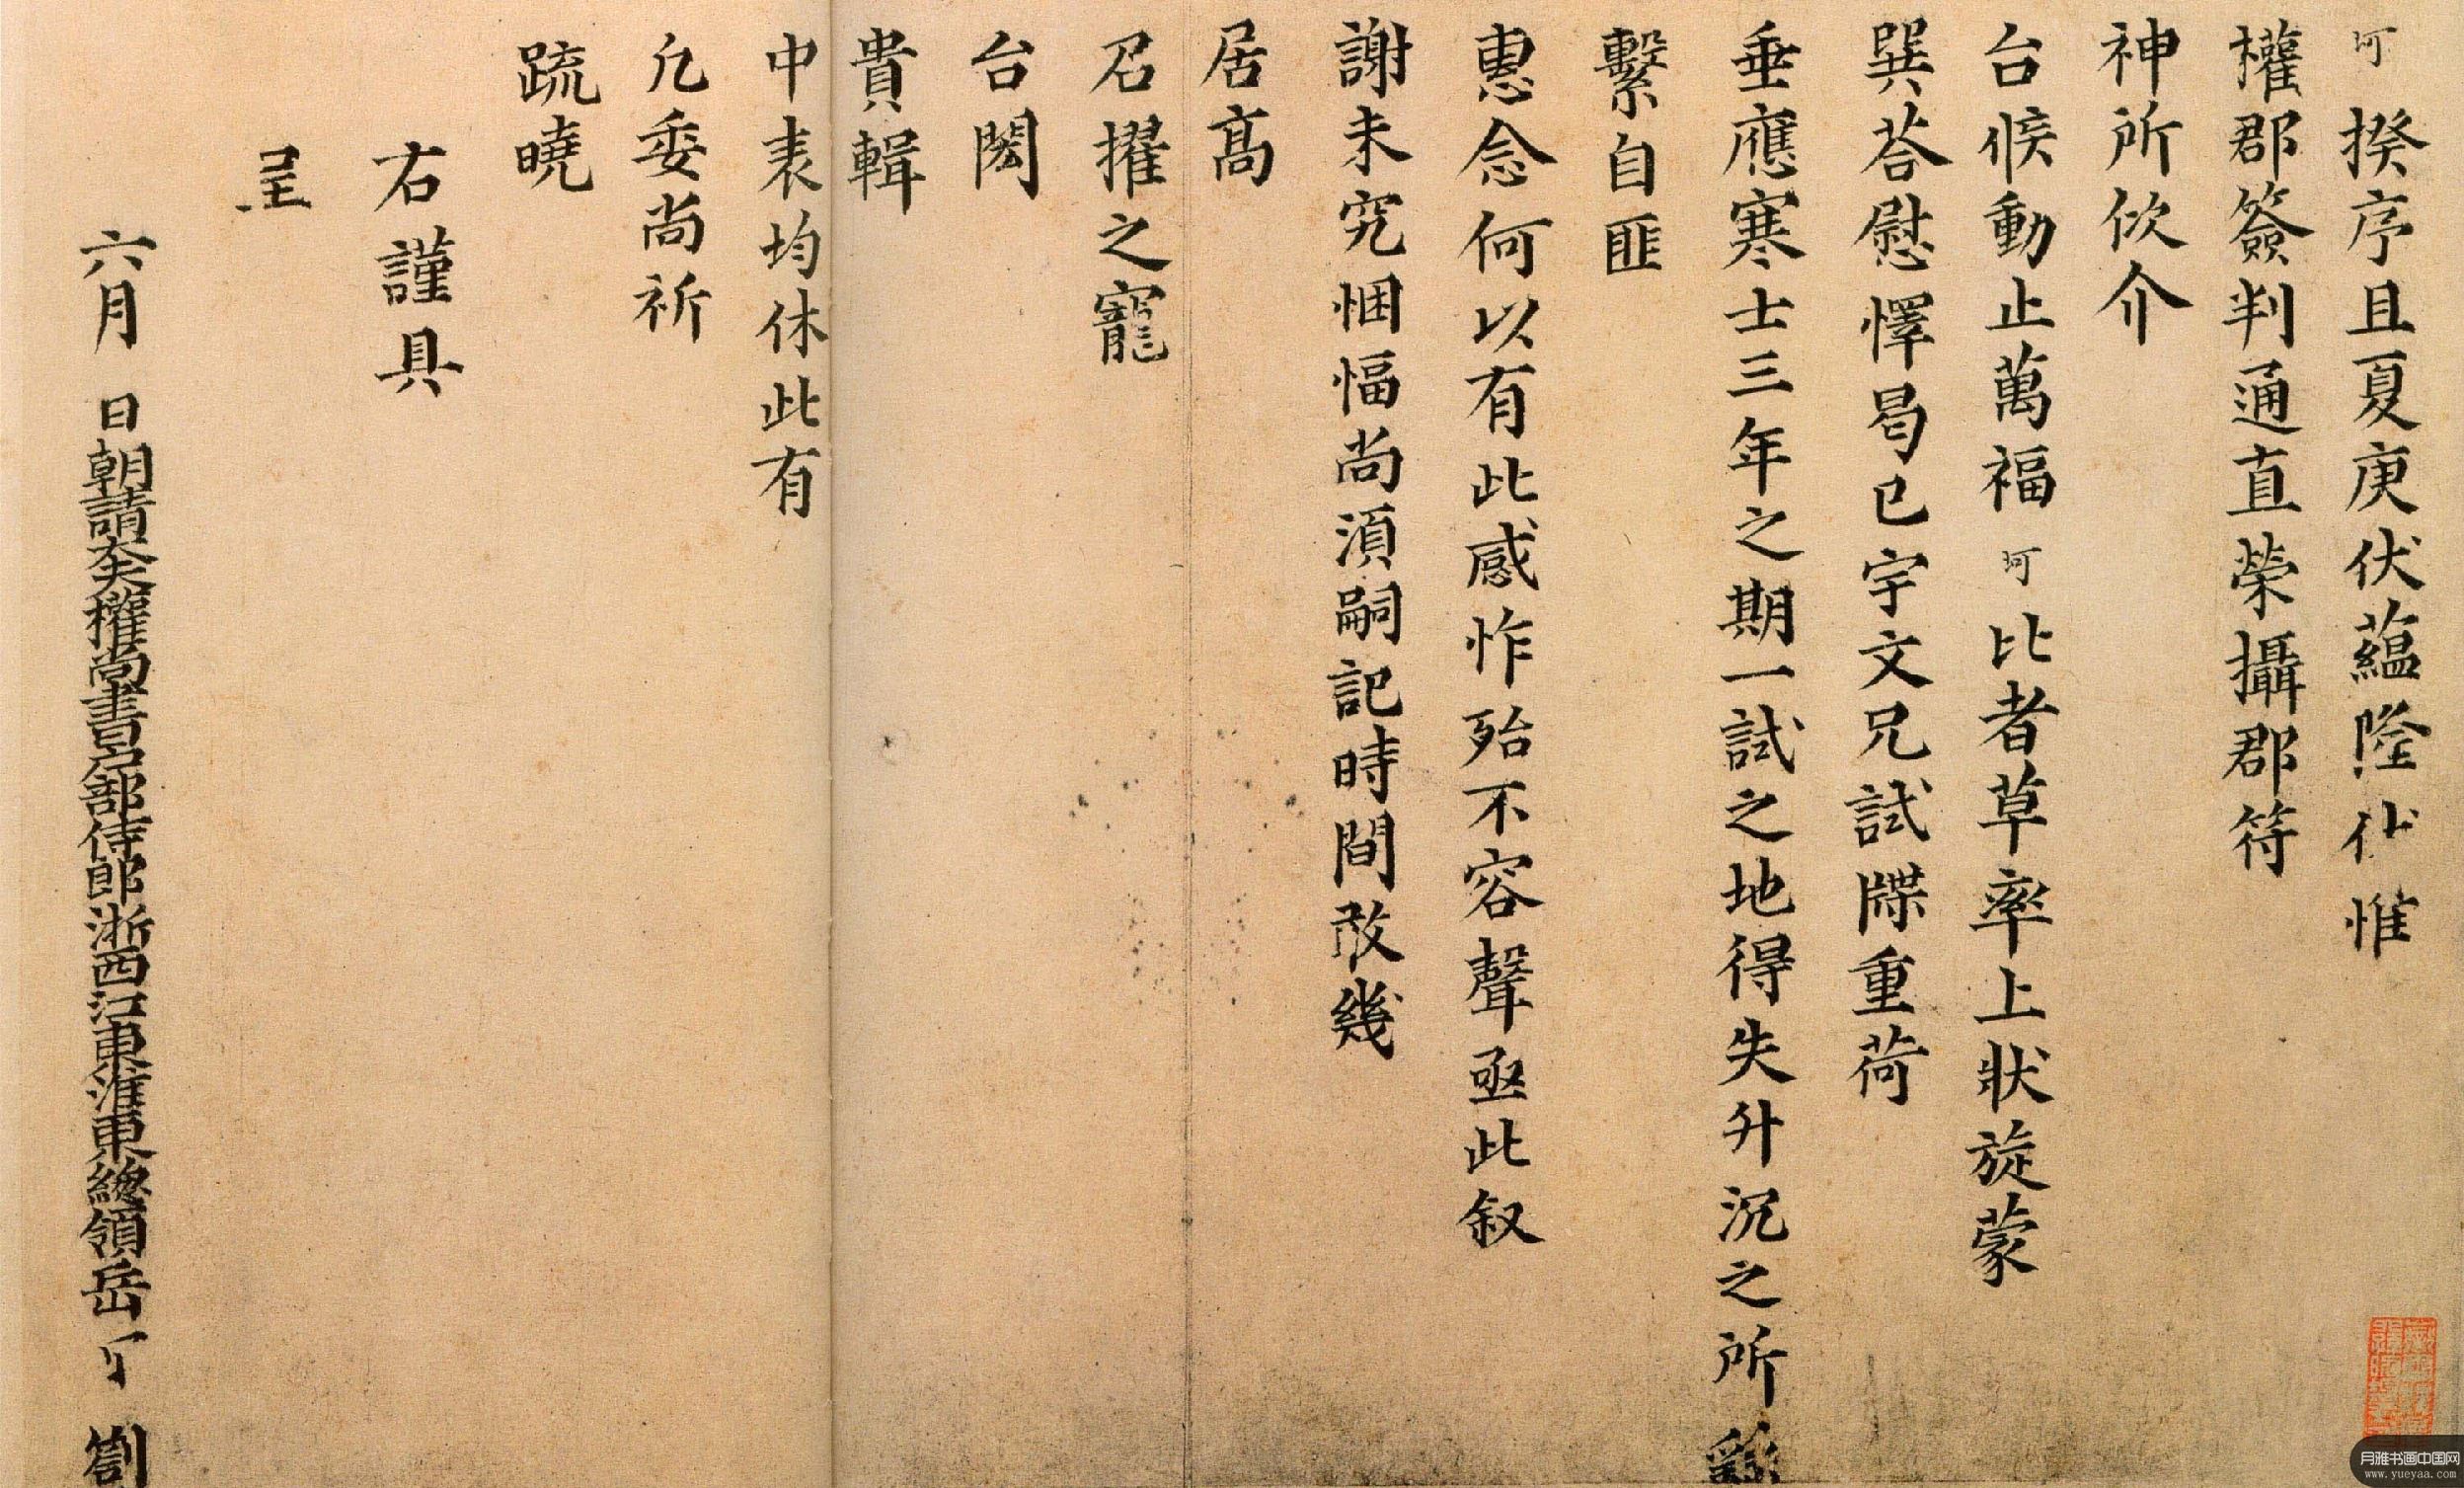 珂揆序且夏庚伏藴隆伏惟
權郡簽判通直榮攝郡符
神所佽介
台候動止萬福珂比者草率上狀旋蒙
巽荅慰懌曷已宇文兄試牒重荷
垂應寒士三年之期一試之地得失升沉之所繇
繫自匪
惠念何以有此感怍殆不容聲亟此叙
謝未究悃愊尚須嗣記時間敢幾
居髙
召擢之寵
台閎
貴輯
中表均休此有
凢委尚祈
疏曉
右謹具
呈
六月 日朝請大夫權尚書户部侍郎浙西江東淮東總領岳珂劄
月雅书画中国网
www.yueyaa.com